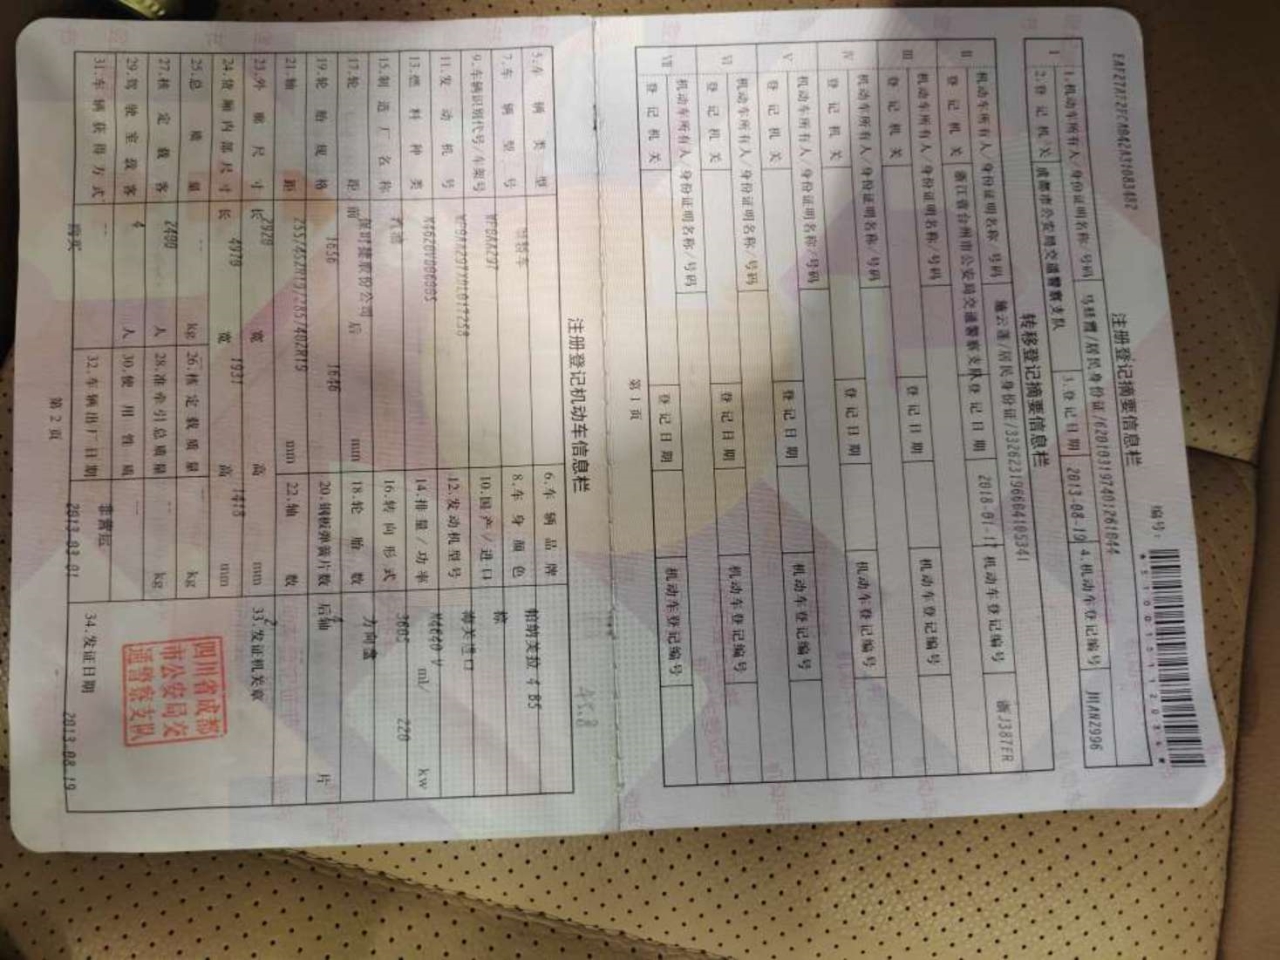 编号:
注册登记摘要信息栏
I 1.机动车所有人/身份证明名称/号码
2.登记机关 成都市公安局交通警察支队 3.登记日期 2013-08-19 4.机动车登记编号 川AN2996
转移登记摘要信息栏
II 机动车所有人/身份证明名称/号码
登记机关 浙江省台州市公安局交通警察支队 登记日期 2018-01-11 机动车登记编号 浙J387FR
III 机动车所有人/身份证明名称/号码
登记机关 登记日期 机动车登记编号
IV 机动车所有人/身份证明名称/号码
登记机关 登记日期 机动车登记编号
V 机动车所有人/身份证明名称/号码
登记机关 登记日期 机动车登记编号
VI 机动车所有人/身份证明名称/号码
登记机关 登记日期 机动车登记编号
VII 机动车所有人/身份证明名称/号码
登记机关 登记日期 机动车登记编号
第1页
注册登记机动车信息栏
5.车辆类型 6.车辆品牌 帕纳美拉
7.车辆型号 8.车身颜色 棕
9.车辆识别代号/车架号 10.国产/进口 海关进口
11.发动机号 12.发动机型号
13.燃料种类 汽油 14.排量/功率 3605 ml/ 220 kw
15.制造厂名称 保时捷股份公司 16.转向形式 方向盘
17.轮距 前 1656 后 1646 mm 18.轮胎数 4
19.轮胎规格 255/45ZR19/285/40ZR19 20.钢板弹簧片数 后轴 片
21.轴距 2920 mm 22.轴数 2
23.外廓尺寸 长 4970 宽 1931 高 1418 mm 33.发证机关章
24.货厢内部尺寸 长 宽 高 mm
25.总质量 2400 kg 26.核定载质量 kg
27.核定载客 4 人 28.准牵引总质量 kg
29.驾驶室载客 人 30.使用性质 非营运
31.车辆获得方式 购买 32.车辆出厂日期 2013-03-01 34.发证日期 2013-08-19
四川省成都
市公安局交
通警察支队
第2页